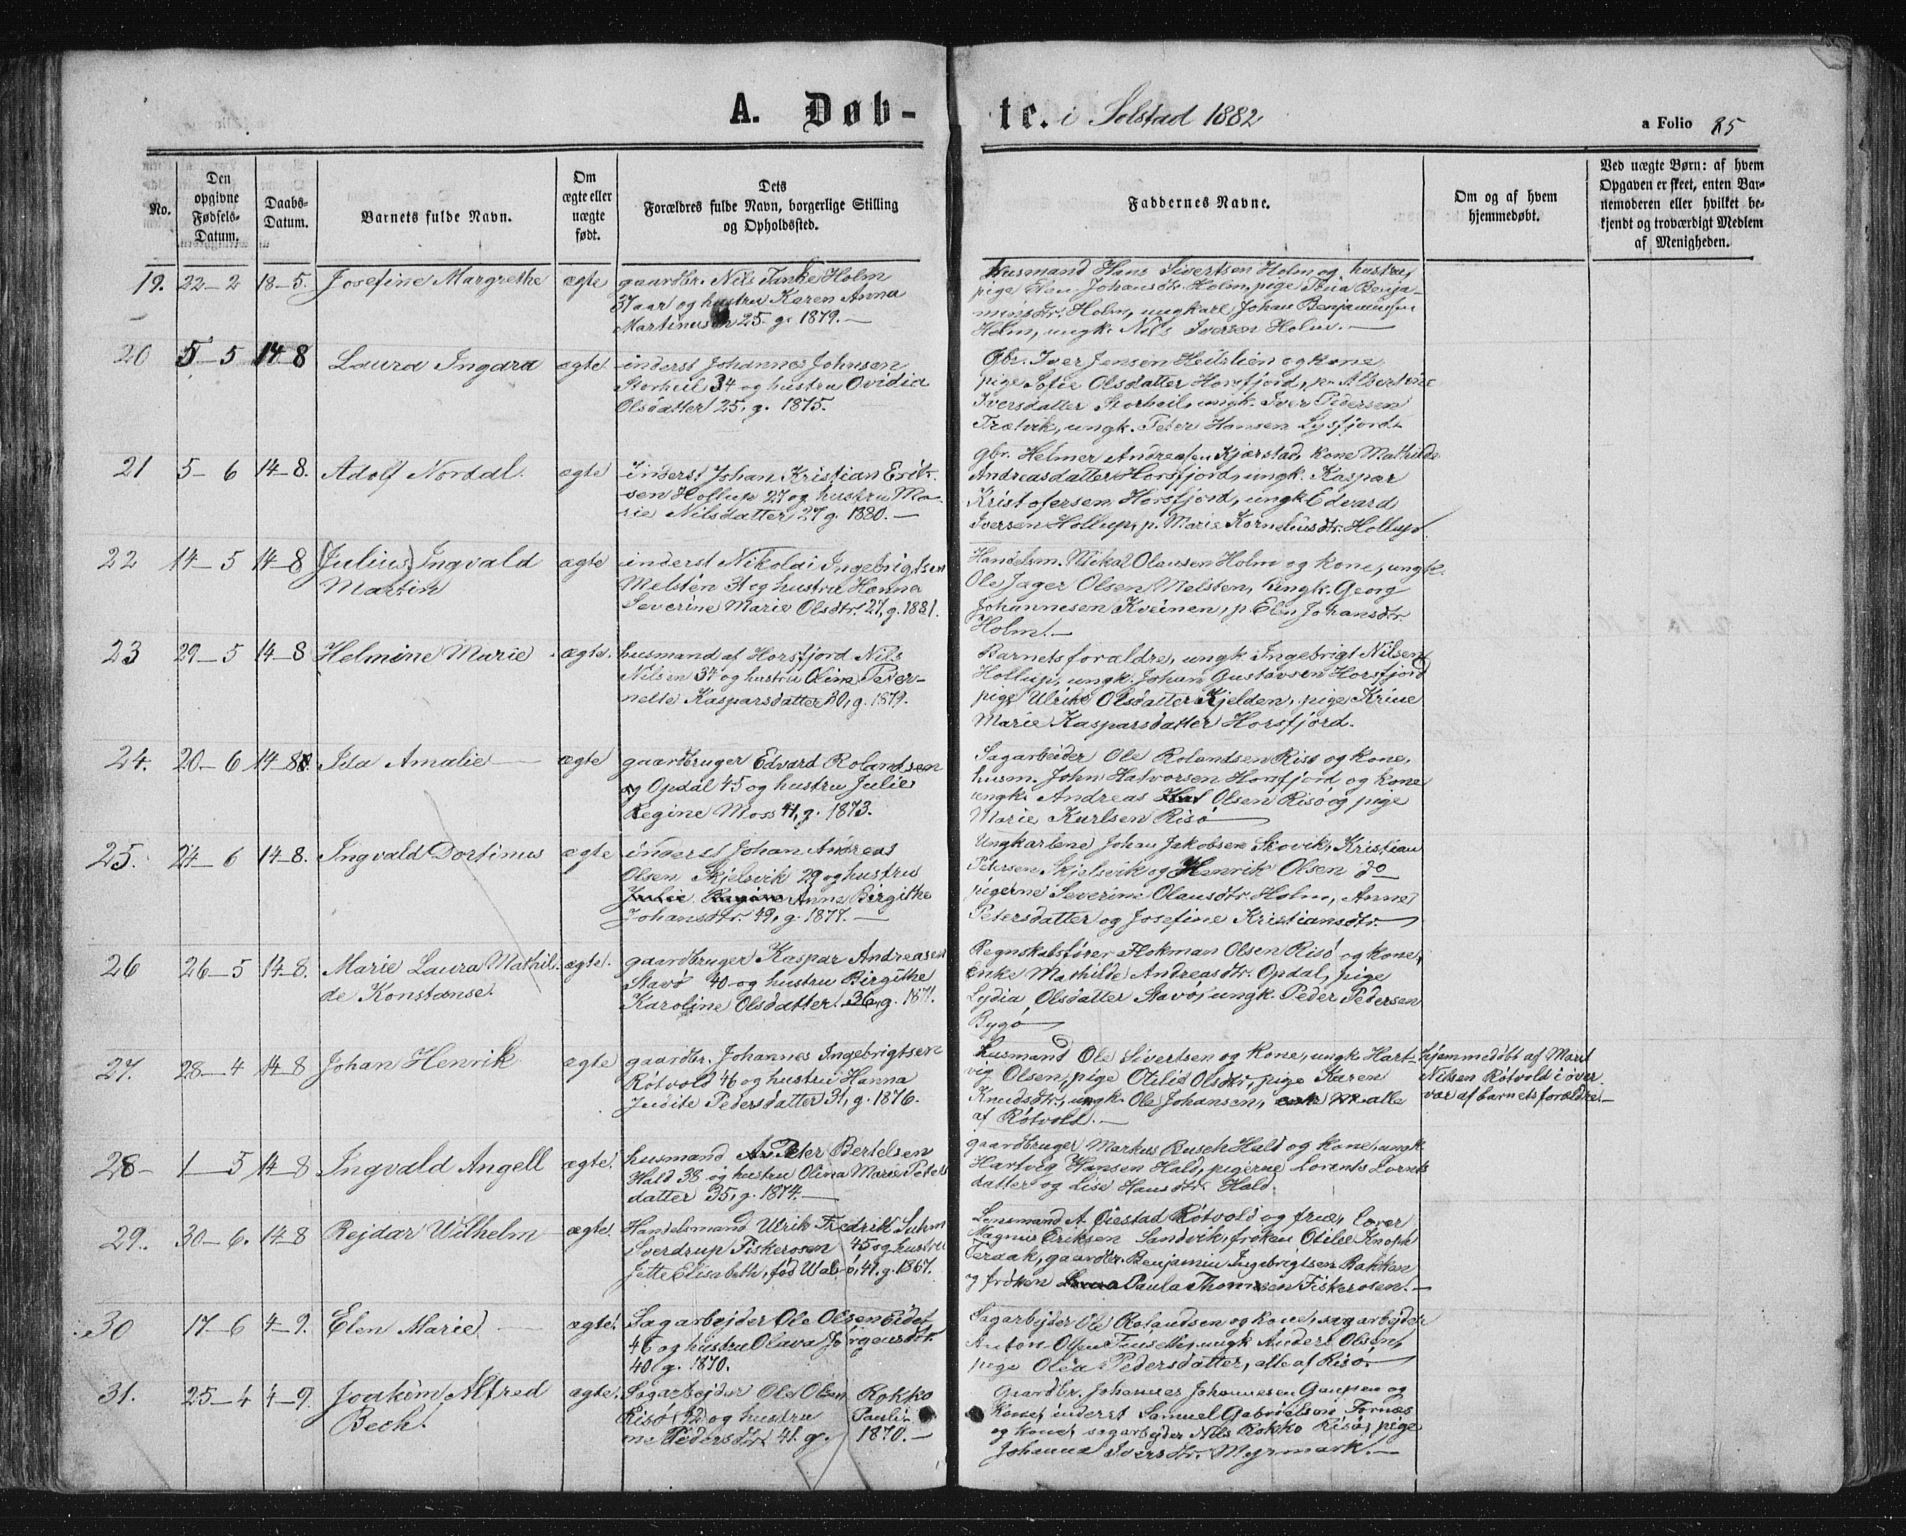 A. Døb-te. i Solstad 1882
a Folio 85
No.
Den opgivne Fødsels-Datum.
Daabs-Datum.
Barnets fulde Navn.
Om ægte eller uægte født.
Dets Forældres fulde Navn, borgerlige Stilling og Opholdssted.
Faddernes Navne.
Om og af hvem hjemmedøbt.
Ved uægte Børn: af hvem
Opgaven er skeet, enten Bar-
nemoderen eller hvilket be-
kjendt og troværdigt Medlem
af Menigheden.
19. 22–2 18–5. Josefine Margrethe ægte
gaardbr. Nils Tanke Holm
37 aar og hustru Karen Anna
Martinusen 25. g. 1879.—
Husmand Hans Sivertsen Holm og hustru,
pige Elen Johansdtr. Holm, pige Benja-
minsdtr. Holm, ungkarl Johan Benjaminsen
Holm, ungk. Nils Iversen Holm.—
20 5–5 14–8 Laura Ingara ægte
inderst Johannes Johnsen
Storheil 34 og hustru Ovidia
Olsdatter 25, g. 1875.
Gbr. Iver Jensen Heilslien og kone,
pige Sofie Olsdatter Horsfjord, p. Albertine
Iversdatter Storheil, ungk. Iver Pedersen
Trætvik, ungk. Peter Hansen Lysfjord.
21 5–6 14–8. Adolf Norddl. ægte
Inderst Johan Kristian Erik-
sen Hollup 27 og hustru Ma-
rie Nilsdatter, 27 g. 1880.—
Gbr. Helmer Andreasen Kjærstad, kone Mathilde
Andreasdatter Horsfjord, ungk. Kaspar
Kristofersen Horsfjord, ungk Edvard
Iversen Hollup, p. Marie Korneliusdtr. Hollup.
22 14–5 14–8 (Julius) Ingvald
Martin ægte
inderst Nikolai Ingebrigtsen
Melsten 31 og hustru Hanna
Severine Marie Olsdtr. 27, g. 1881.
Handelsm. Mikal Olausen Holm og kone, ungk.
Ole Jager Olsen Melsten, ungk. Georg
Johannesen Kveinen, p. Elen Johansdtr.
Holm.—
23 29–5 14–8 Helmine Marie ægte.
husmand af Horsfjord Nils
Nilsen 37 og hustru Oline Peder-
nelte Kaspersdatter 30, g. 1879.
Barnets forældre, ungk. Ingebrigt Nilsen
Hollup, ungk. Johan Gustavsen Horsfjord
pige Ulrike Olsdatter Kjelden, pige Krine
Marie Kaspersdatter Horsfjord.
24. 20–6 14–8 Ida Amalie ægte
gaardbruger Edvard Rolandsen
Opdal 45 og hustru Julie
Regine Moss 41, g. 1873.
Sagarbeider Ole Rolandsen Risø og kone,
husm. John Halvorsen Horsfjord og kone
ungk. Andreas Olsen Risø og pige
Marie Karlsen Risø
25. 24–6 14–8. Ingvald Dortinus ægte
inderst Johan Andreas
Olsen Skjelsvik 29 og hustru
Julie Regine Anne Birgithe
Johansdtr. 49, g. 1877.—
Ungkarlene Johan Jakobsen Skovik, Kristian
Petersen Skjelsvik og Henrik Olsen do
pigerne Severine Olausdtr. Holm, Anne
Petersdatter og Josefine Kristiansdtr.
26 26–5 14–8. Marie Laura Mathil-
de Konstanse. ægte.
gaardbruger Kaspar Andreasen
Stavø 40 og hustru Birgithe
Karoline Olsdatter 36, g. 1871.
Regnskabsfører Flokman Olsen Risø og kone,
enke Mathilde Andreasdtr. Opdal, pige
Lydia Olsdatter Stavø, ungk. Peder Pedersen
Bygø
27. 28–4 14–8 Johan Henrik ægte
gaardbr. Johannes Ingebrigtsen
Røtvold 46 og hustru Hanna
Judite Pedersdatter 31, g. 1876.
Husmand Ole Sivertsen og kone, ungk Hart-
vig Olsen, pige Otilie Olsdtr, pige Karen
Knudsdtr, ungk. Ole Johansen, alle
af Røtvold.—
hjemmedøbt af Marit
Nilsen Røtvold i over-
vær af barnets forældre.—
28– 1–5 14–8 Ingvald Angell ægte.
husmand Peter Bertelsen
Hald 38 og hustru Olina Marie Peters-
datter 35, g. 1874.—
gaardbruger Markus Busch Hald og kone, ungk
Hartvig Hansen Hald, pigerne Lorents
datter og Lise Hansdtr. Hald.
29. 30–6. 14–8 Rejdar Wilhelm ægte.
Handelsmand Ulrik Fredrik Suhm
Sverdrup Fiskerosen 45 og hustru
Jette Elisabeth, fød, 41, g. 1867.
Lensmand A. Øiestad Røtvold og frue, lærer
Magnus Eriksen Sandvik, frøken Otilie Knoph
Teraak, gaardbr. Benjamin Ingebrigtsen Bakken
og frøken Paula Thomsen Fiskerosen.—
30 17–6 4–9. Elen Marie ægte.
Sagarbejder Ole Olsen Eidet
46 og hustru Olava Jørgensdtr
40, g. 1870.
Sagarbejder Ole Rolandsen og kone, sagarbejder
Anton Olsen, ungk Anders Olsen,
pige Olea Pedersdatter, alle af Risø.
31. 25–4 4–9. Joakim Alfred
Bech. ægte.
Sagarbejder Ole Olsen Rokko
Risø 42 og hustru Pauli-
ne Pedersdtr. 41. g. 1870.—
Gaardbr. Johannes Johannesen Gaupen og
Kone, inderst Samuel Gabrielsen Fornæs
og kone, sagarbejder Nils Rokko Risø, pige
Johanna Iversdtr. Myrmark.—